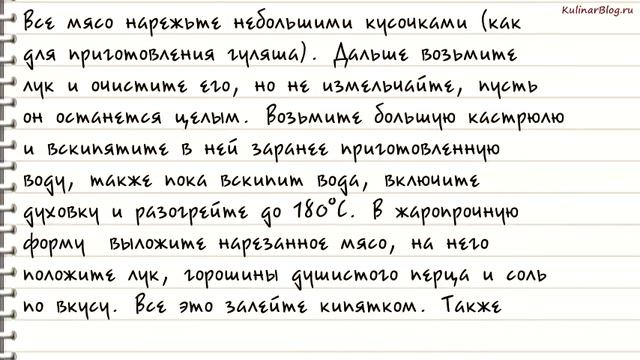 KulinarBlog.ru
Все мясо нарежьте небольшими кусочками (как
для приготовления гуляша). Дальше возьмите
лук и очистите его, но не измельчайте, пусть
он останется целым. Возьмите большую кастрюлю
и вскипятите в ней заранее приготовленную
воду, также пока вскипит вода, включите
духовку и разогрейте до 180°С. В жаропрочную
форму выложите нарезанное мясо, на него
положите лук, горошины душистого перца и соль
по вкусу. Все это залейте кипятком. Также